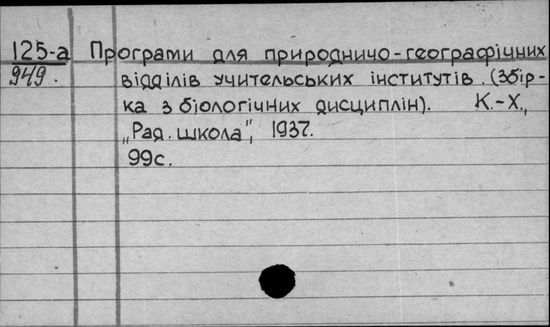 125-а Програми для природничо-географічних
949. відділів учительських інститутів. (Збір-
ка з біологічних дисциплін). К.-Х.,
„Рад. школа", 1937.
99с.